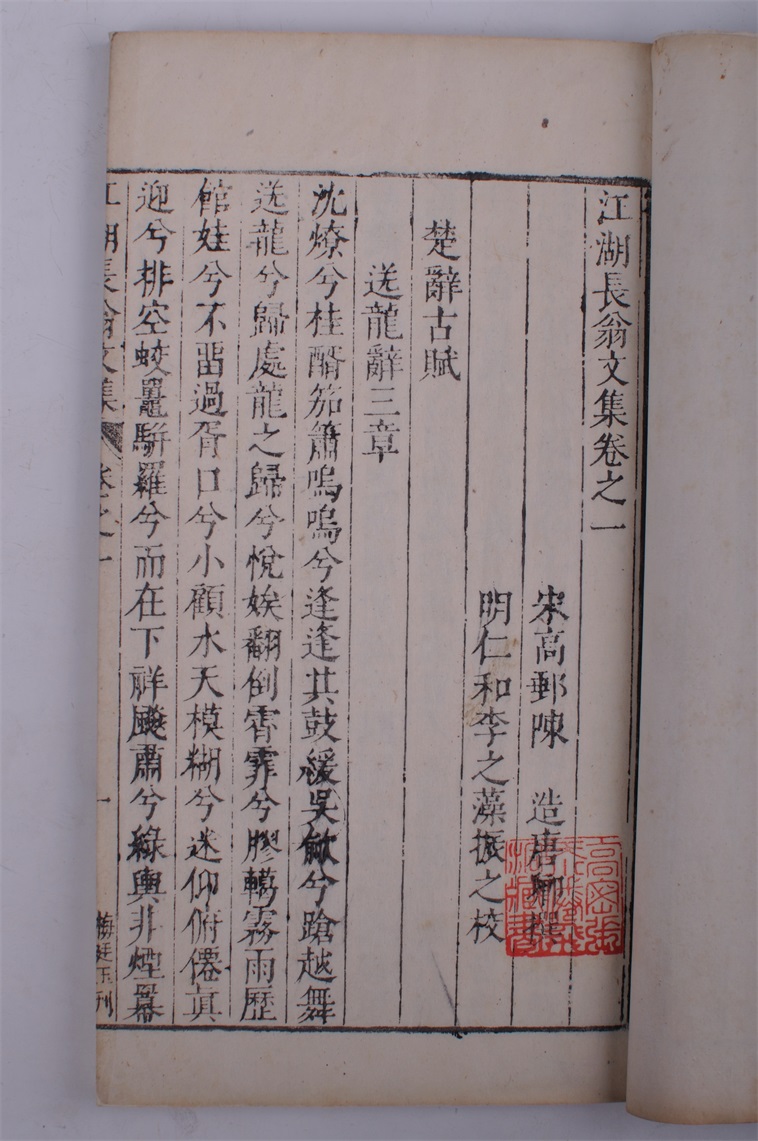 江湖長翁文集卷之一
宋高郵陳 造唐卿撰
明仁和李之藻振之校
楚辭古賦
送龍辭三章
沈燎兮桂醑笳簫嗚嗚兮逢逢其鼓緩吳歈兮蹌越舞
送龍兮歸處龍之歸兮悅娭翻倒霄霏兮膠轕霧雨歷
館娃兮不畱過胥口兮小顧水天模糊兮迷仰俯僊真
迎兮排空蛟鼉駢羅兮而在下祥飈肅兮綠輿非煙羃
江湖長翁文集 卷之一 一